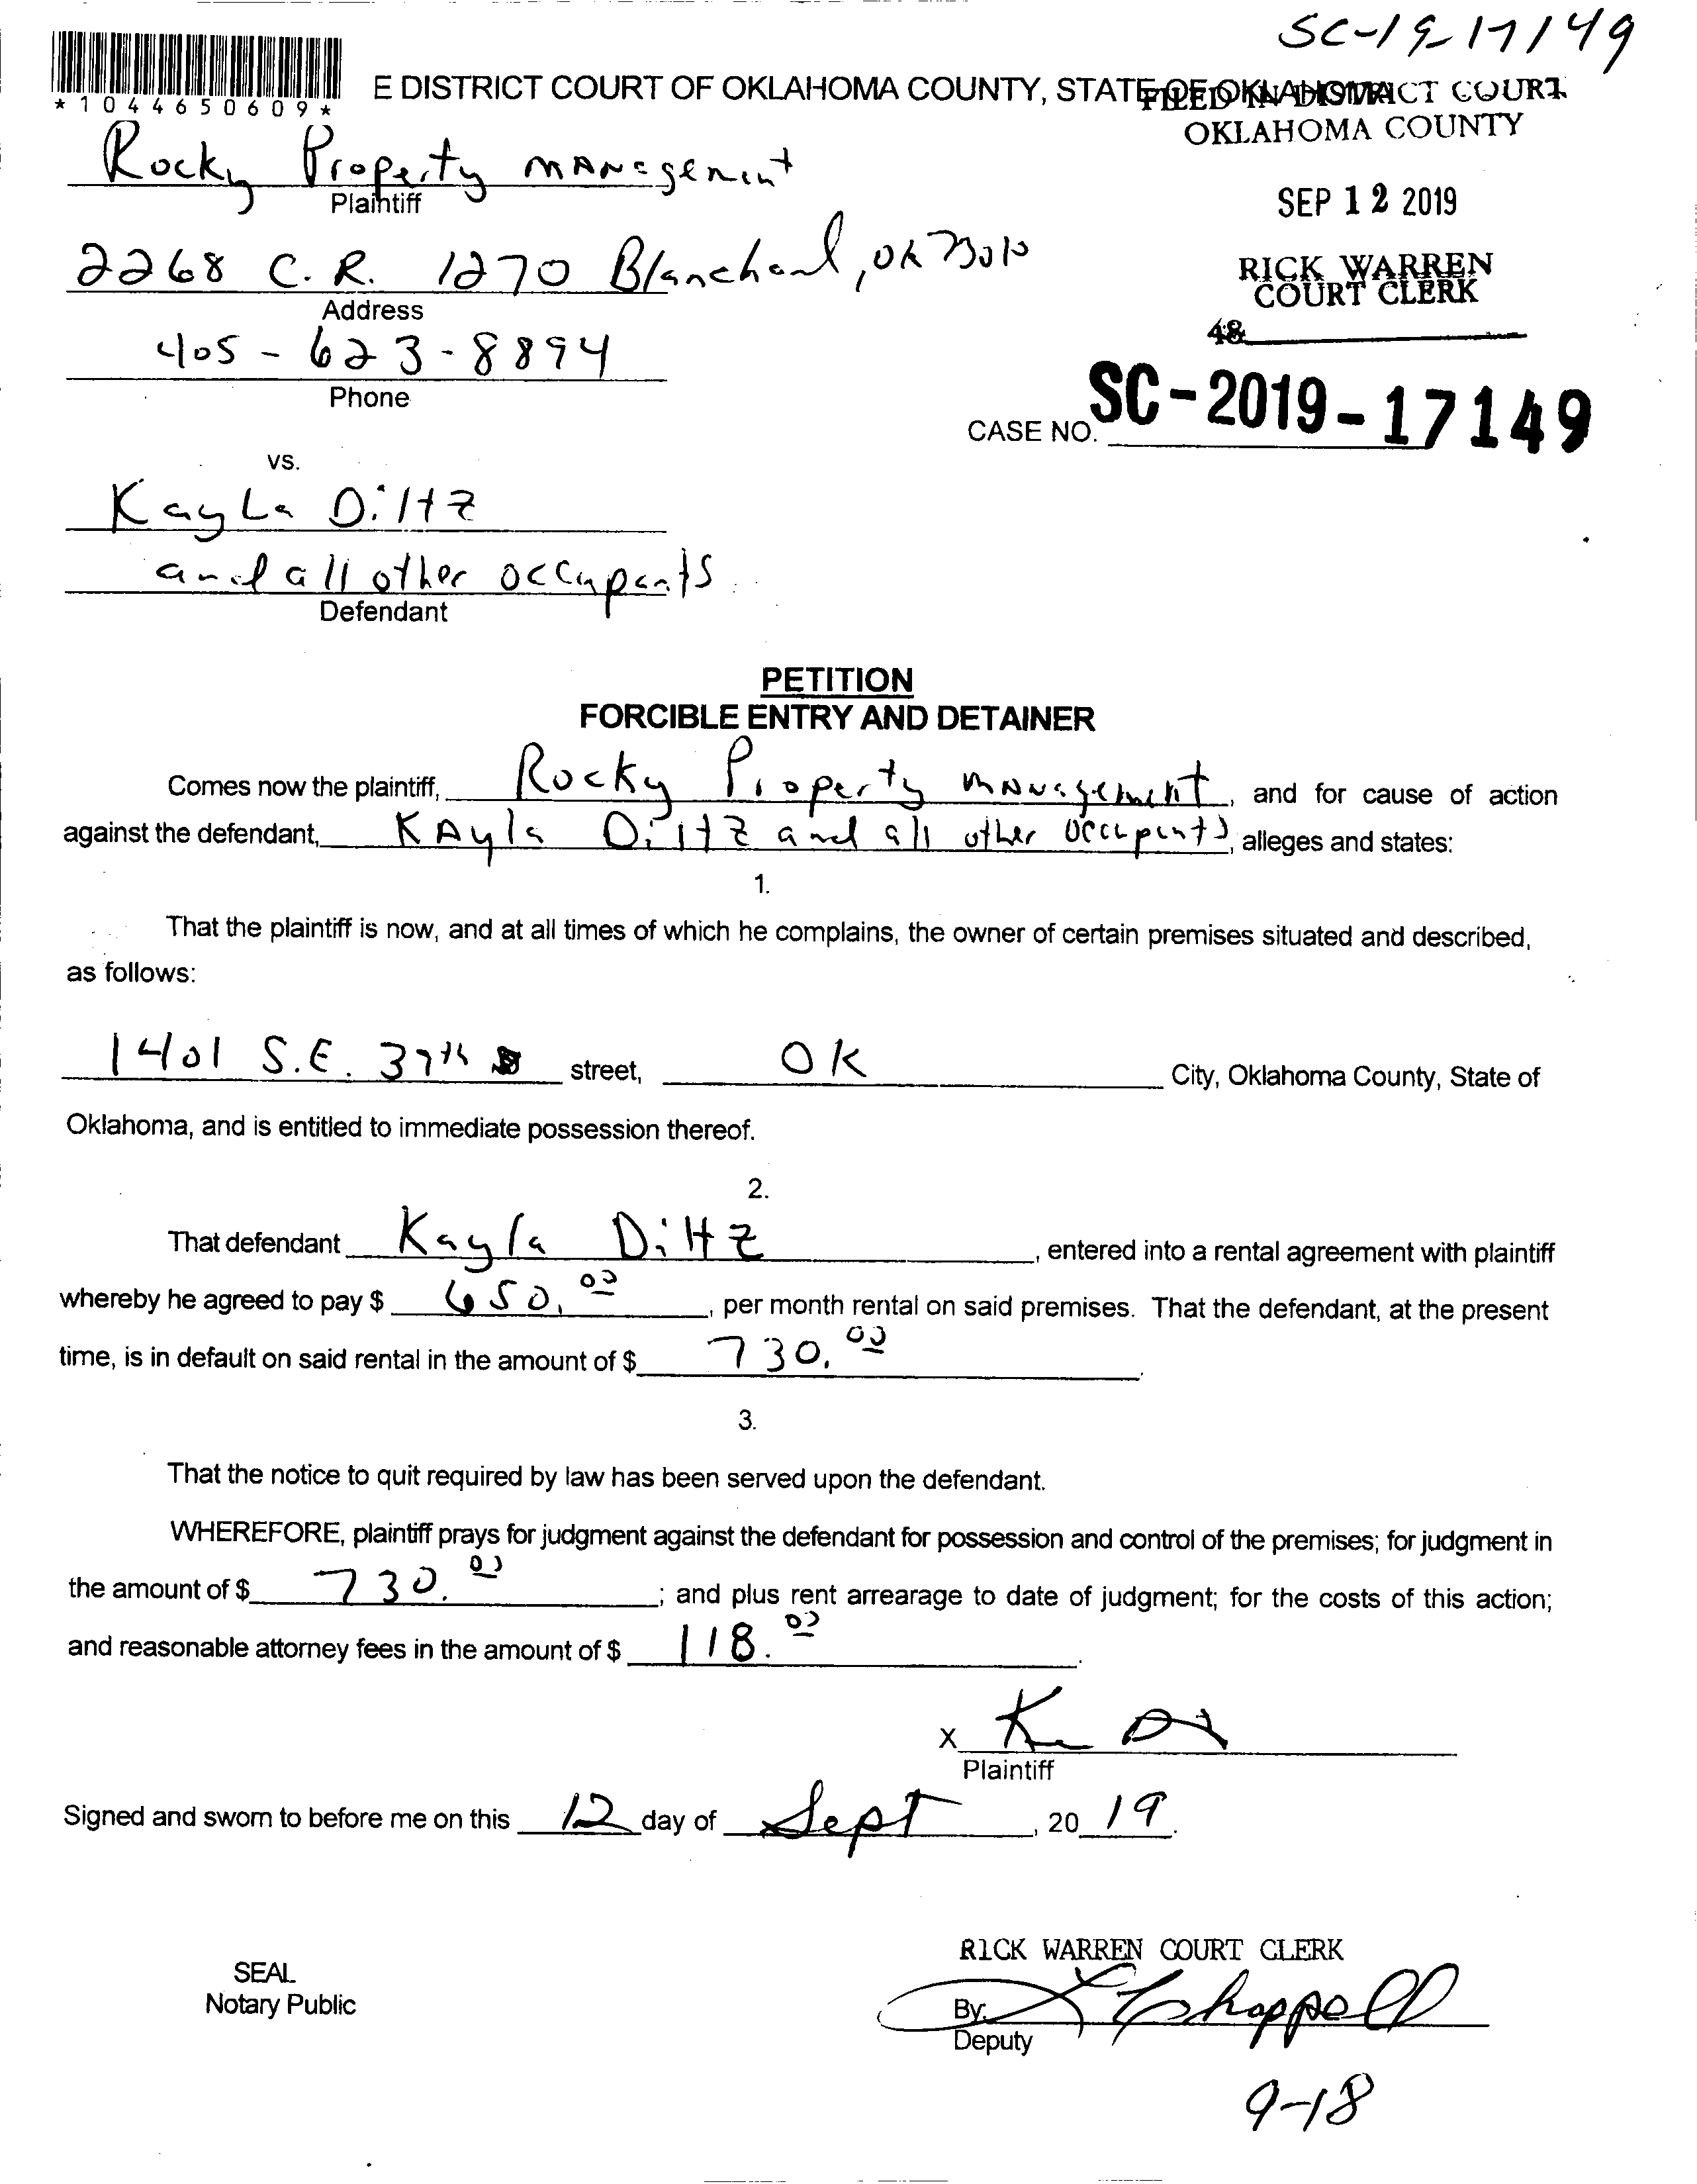 SC-19-17149
*1044650609*
E DISTRICT COURT OF OKLAHOMA COUNTY, STATE OF OKLAHOMA
FILED IN DISTRICT COURT
OKLAHOMA COUNTY
Rocky Property MANagement
Plaintiff
SEP 12 2019
2268 C.R. 1270 Blanchard, OK 73010
Address
RICK WARREN
COURT CLERK
405-623-8894
48
Phone
CASE NO. SC-2019-17149
vs.
KayLa Diltz
and all other occupants
Defendant
PETITION
FORCIBLE ENTRY AND DETAINER
Comes now the plaintiff, Rocky Property management, and for cause of action
against the defendant, KAyla Diltz and all other occupants, alleges and states:
1.
That the plaintiff is now, and at all times of which he complains, the owner of certain premises situated and described,
as follows:
1401 S.E. 37th street, OK City, Oklahoma County, State of
Oklahoma, and is entitled to immediate possession thereof.
2.
That defendant Kayla Diltz, entered into a rental agreement with plaintiff
whereby he agreed to pay $ 650.00, per month rental on said premises. That the defendant, at the present
time, is in default on said rental in the amount of $ 730.00.
3.
That the notice to quit required by law has been served upon the defendant.
WHEREFORE, plaintiff prays for judgment against the defendant for possession and control of the premises; for judgment in
the amount of $ 730.00; and plus rent arrearage to date of judgment; for the costs of this action;
and reasonable attorney fees in the amount of $ 118.00.
X
Plaintiff
Signed and sworn to before me on this 12 day of Sept, 2019.
RICK WARREN COURT CLERK
SEAL
Notary Public
By: Chappell
Deputy
9-18